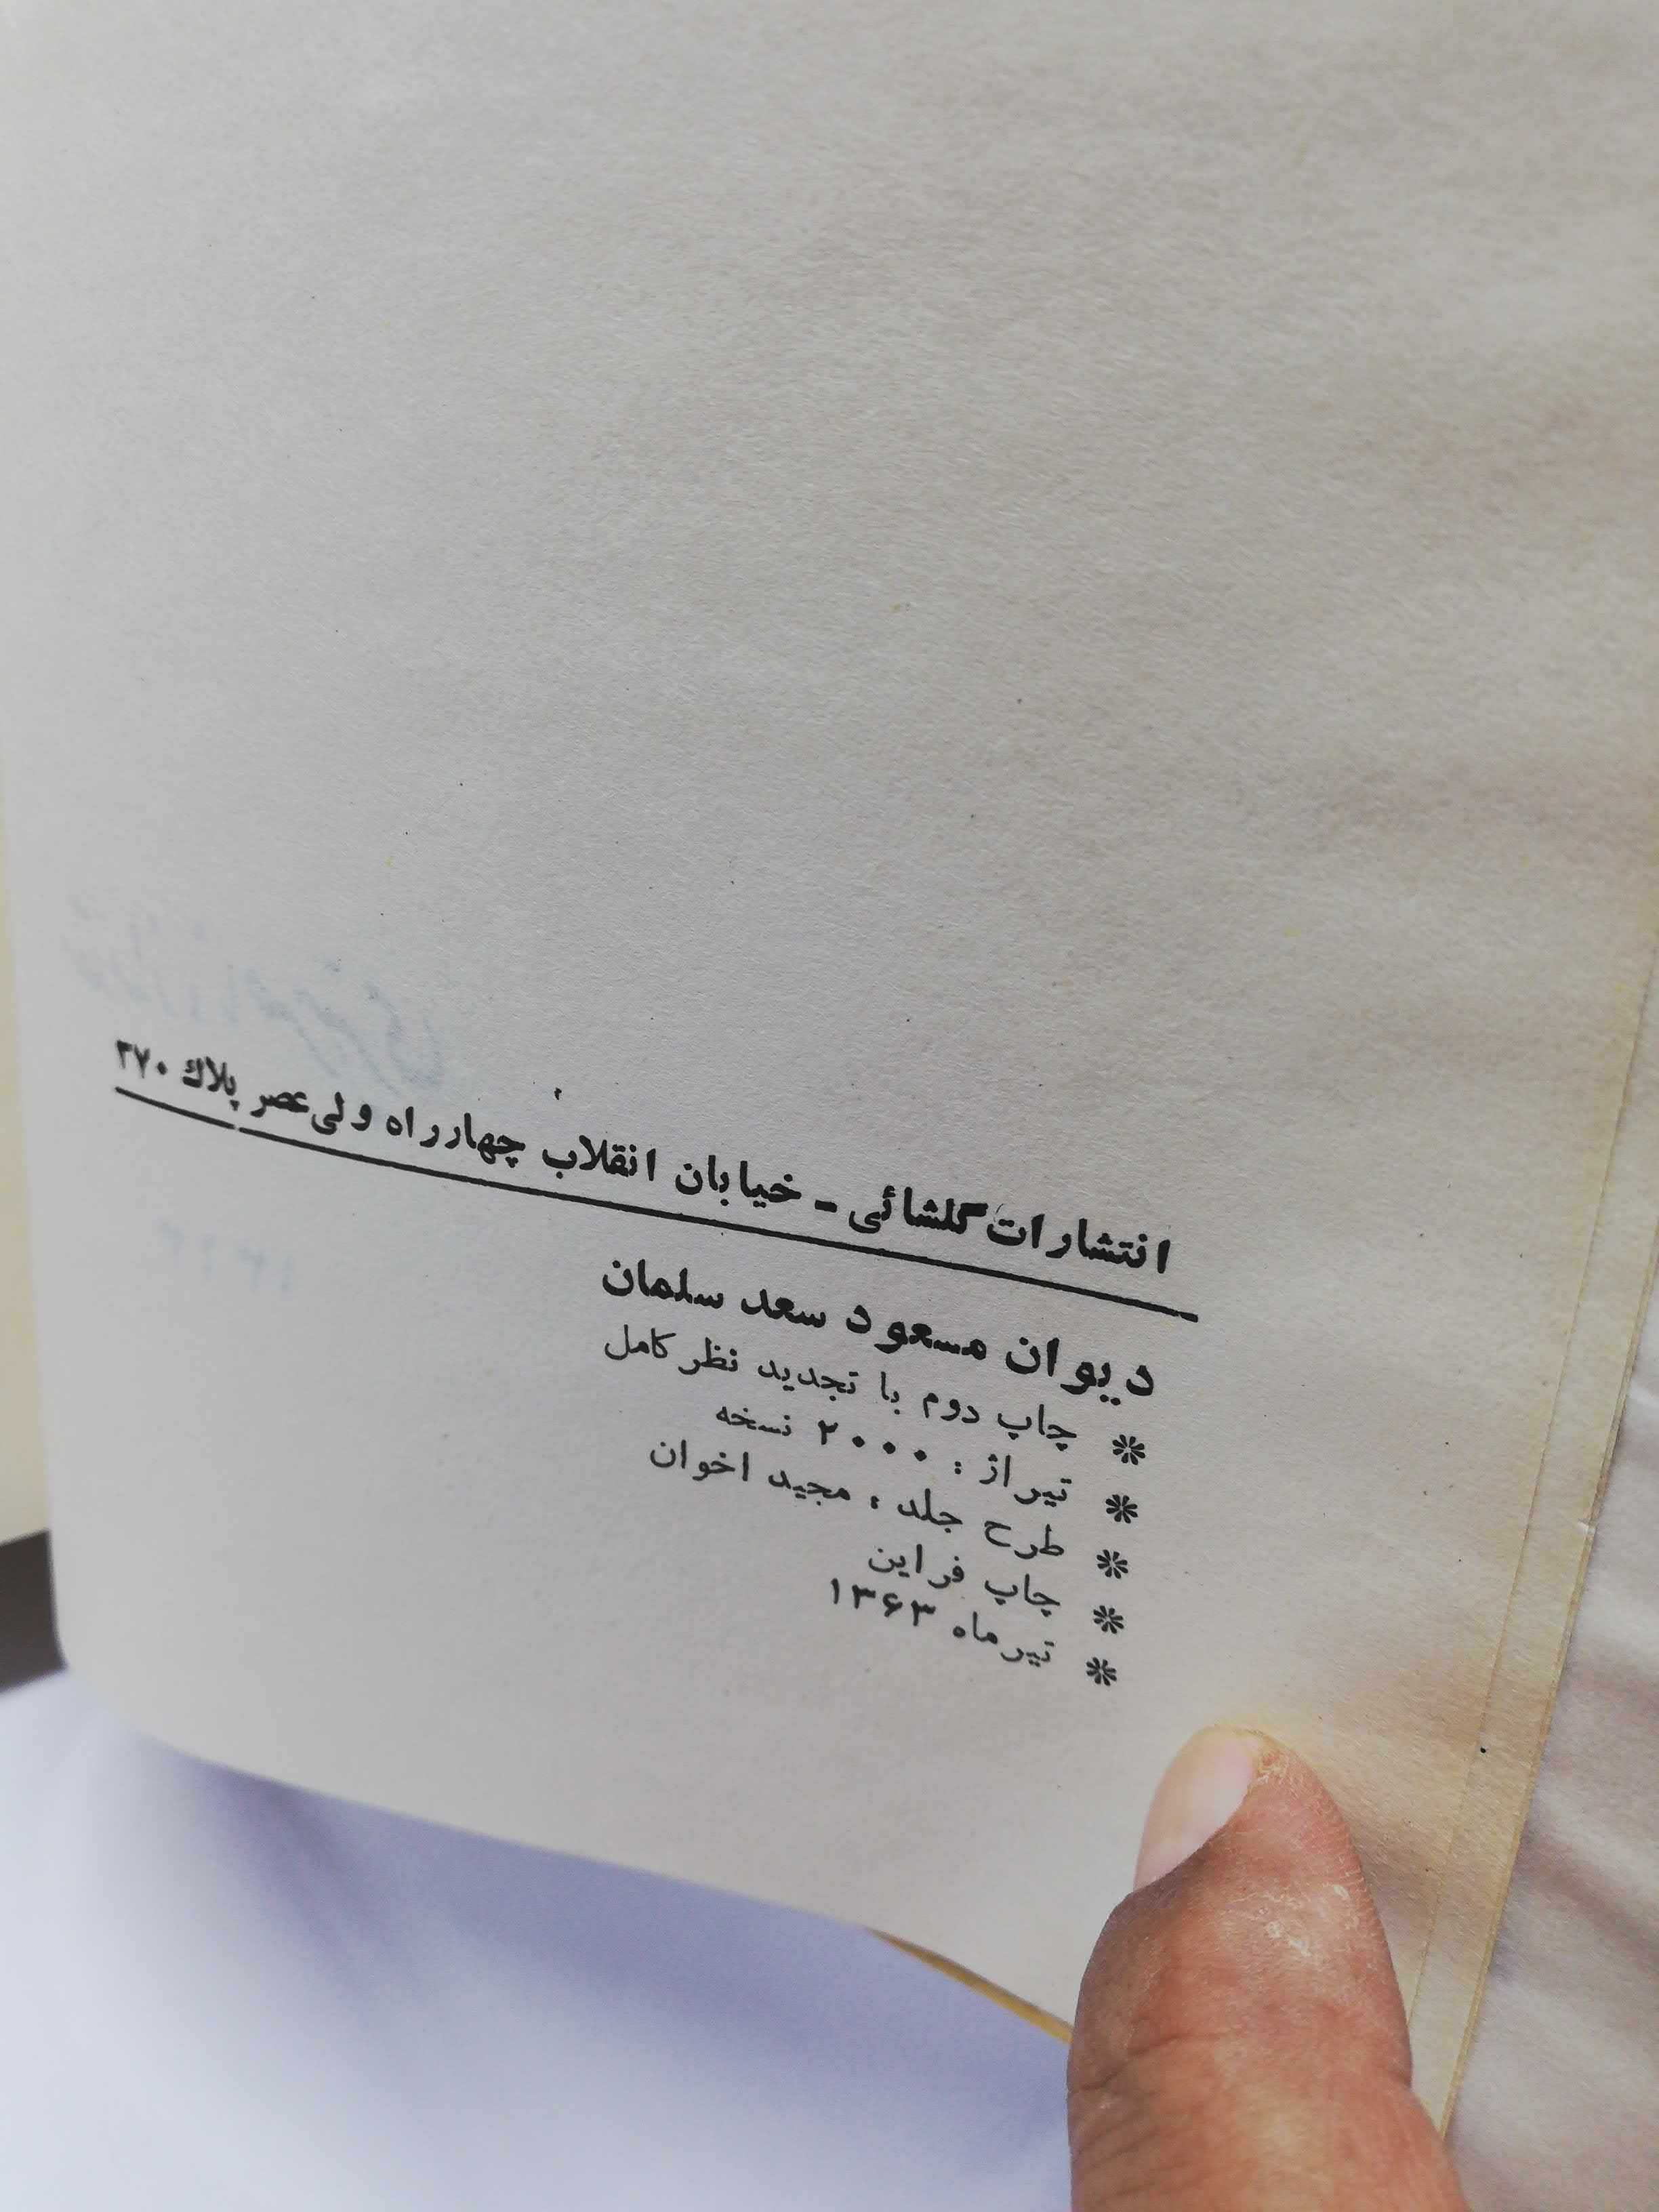 انتشارات گلشائی - خیابان انقلاب چهارراه ولی‌عصر پلاك ۲۷۰
دیوان مسعود سعد سلمان
❊ چاپ دوم با تجدید نظر کامل
❊ تیراژ : ۲۰۰۰ نسخه
❊ طرح جلد : مجید اخوان
❊ چاپ فراین
❊ تیرماه ۱۳۶۳